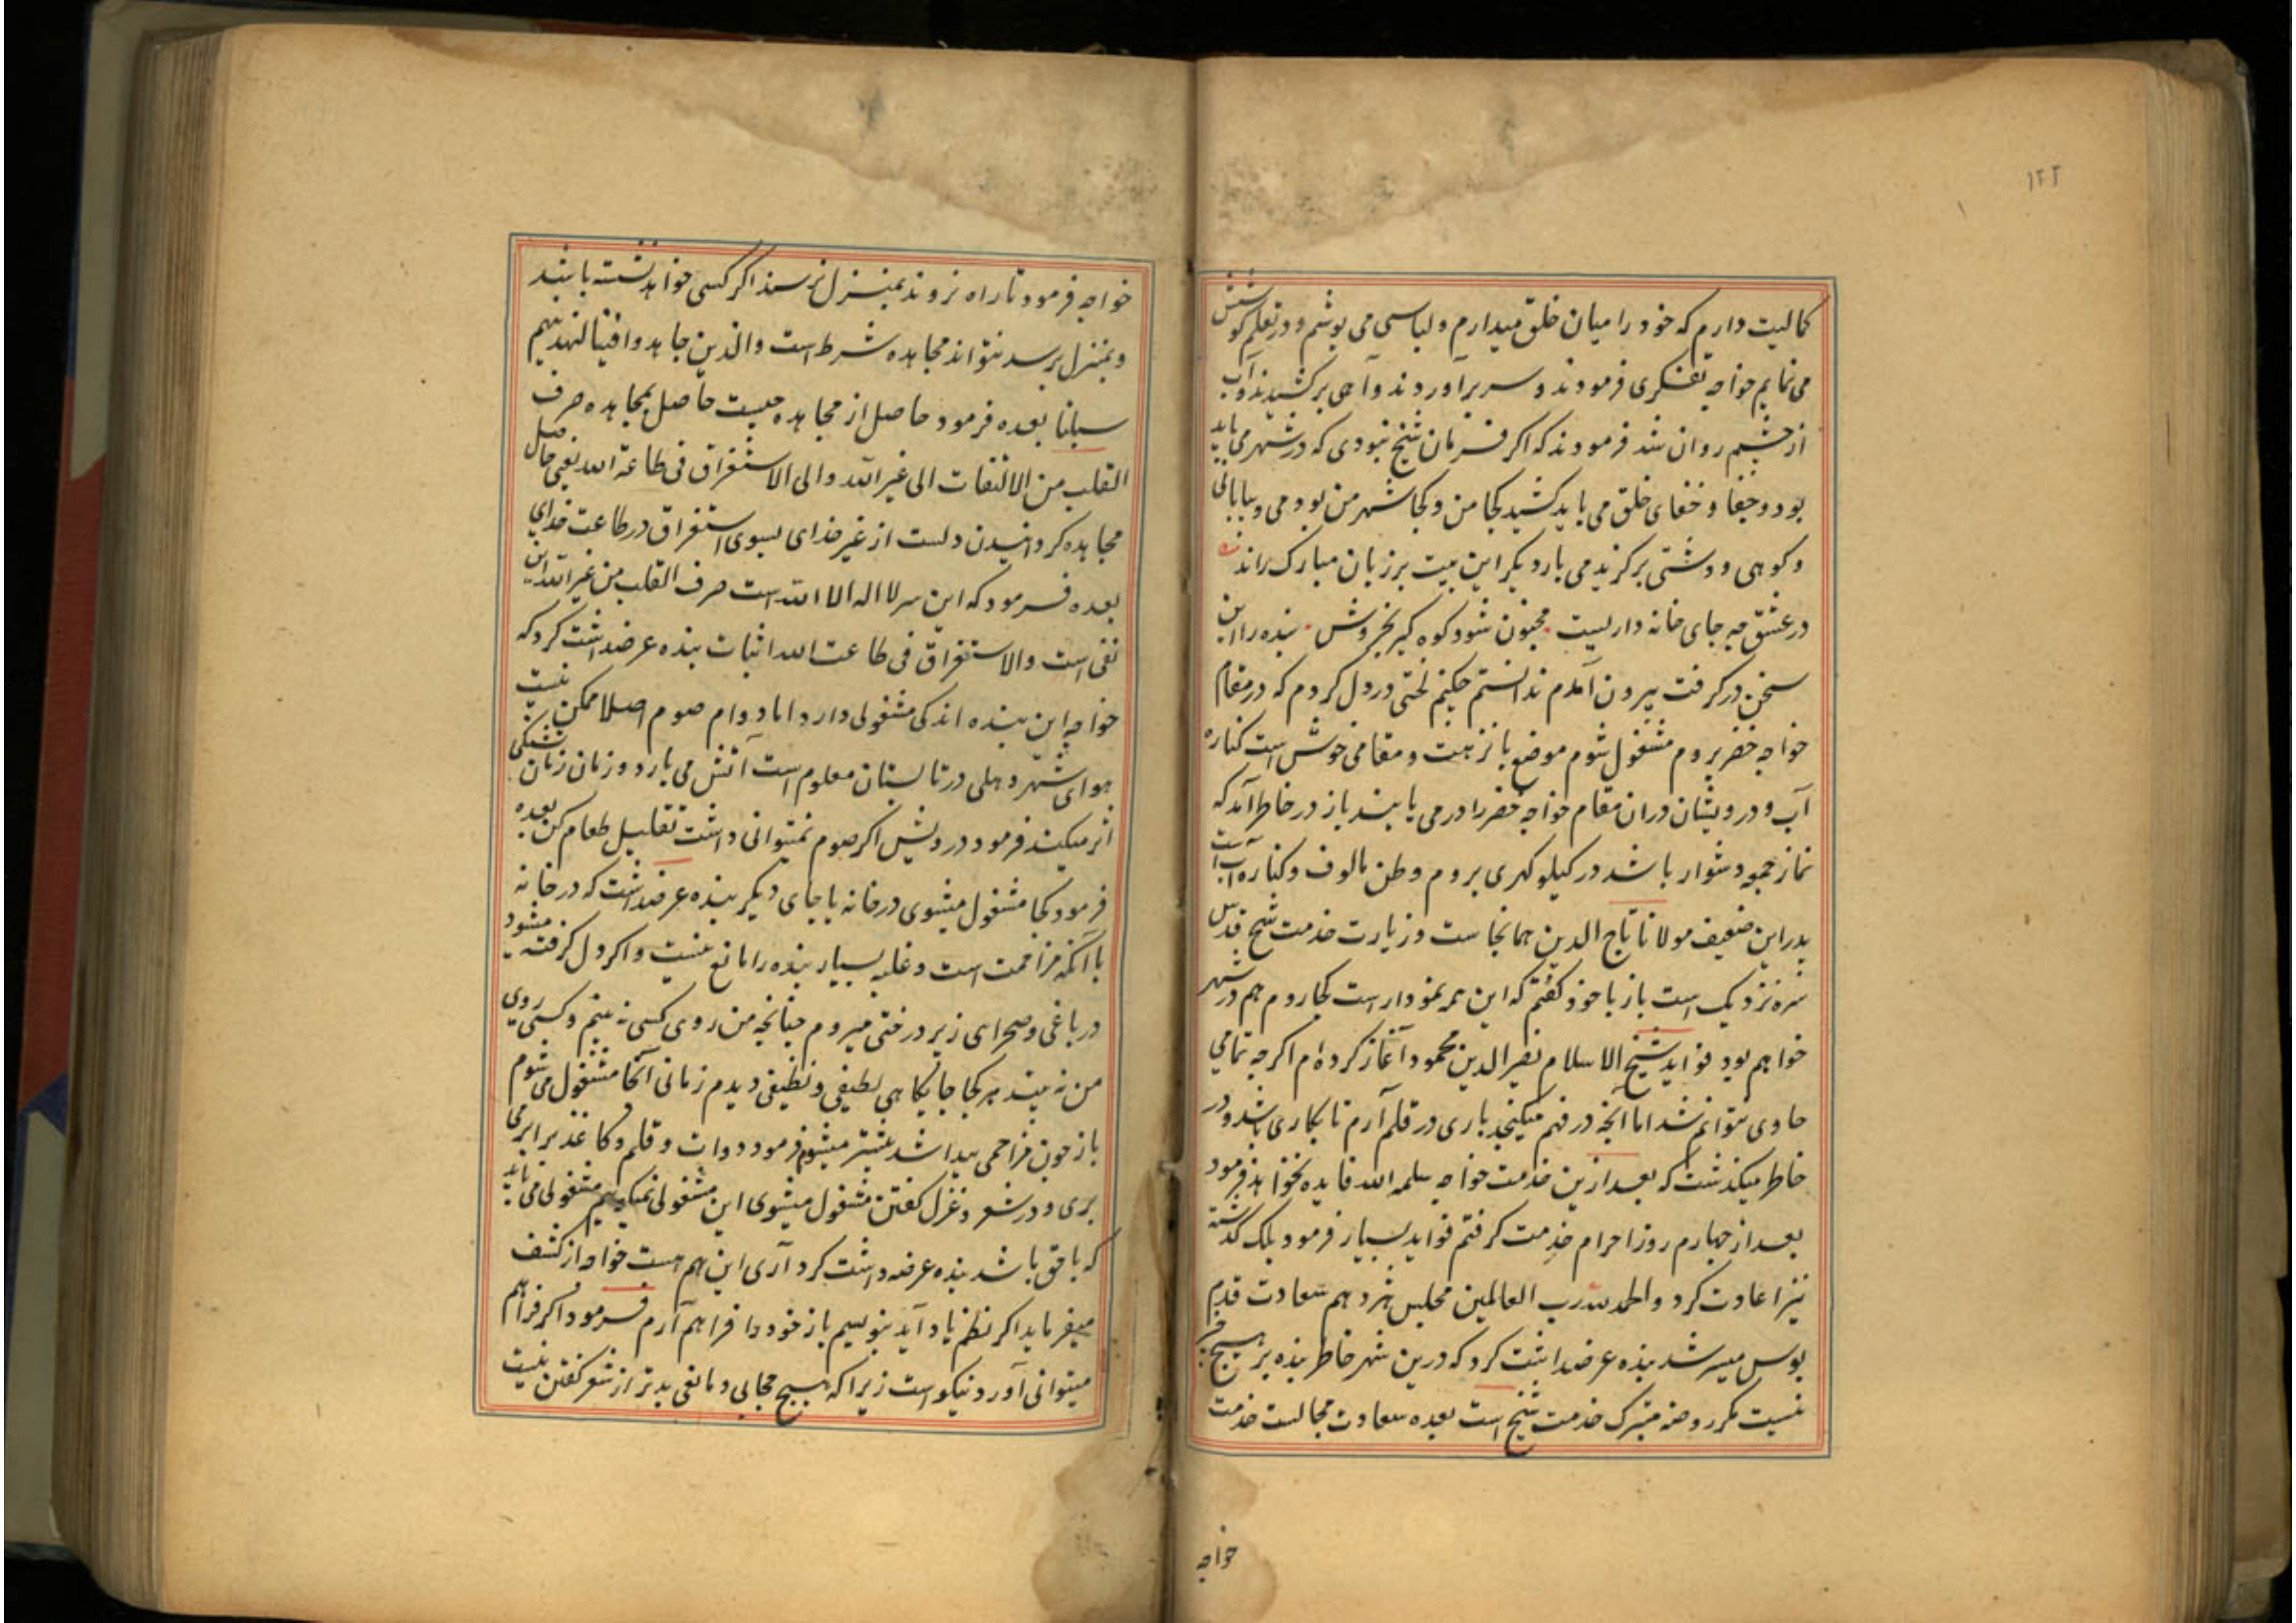 ۱۲۲
کمالیت دارم که خود را میان خلق میدارم و لباسی می پوشم و در تعلم کوشش
می نمایم خواجه تفکری فرمودند و سر برآوردند و آهی برکشیدند و آب
از چشم روان شد فرمودند که اکر فرمان شیخ نبودی که در شهر می باید
بود و جفا و خفای خلق می باید کشید کجا من و کجا شهر من بودمی و بیابانی
و کوهی و دشتی برکزیدمی بار دیکر این بیت بر زبان مبارک راند
در عشق چه جای خانه داریست مجنون شود کوه کیر بخروش بنده را این
سخن درکرفت بیرون آمدم ندانستم چکنم لختی در دل کردم که در مقام
خواجه خضر بروم مشغول شوم موضع با نزهت و مقامی خوش است کناره
آب و درویشان دران مقام خواجه خضر را در می یابند باز در خاطر آمد که
نماز جمعه دشوار باشد در کیلوکهری بروم وطن مالوف و کناره آب است
پدر این ضعیف مولانا تاج الدین همانجاست و زیارت خدمت شیخ قدس
سره نزدیک است باز با خود کفتم که این همه نمودار است کجا روم هم در شهر
خواهم بود فواید شیخ الاسلام نصیر الدین محمود آغاز کرده ام اکر چه تمامی
حاوی نتوانم شد اما آنچه در فهم میکنجد باری در قلم آرم تا بکاری باشد و در
خاطر میکذشت که بعد ازین خدمت خواجه سلمه الله فایده نخواهد فرمود
بعد از چهارم روز احرام خدمت کرفتم فواید بسیار فرمود بلک کذشته
نیز اعادت کرد و الحمد لله رب العالمین مجلس هژدهم سعادت قدم
بوس میسر شد بنده عرضداشت کرد که درین شهر خاطر بنده بر هیچ
نیست مکر روضه متبرک خدمت شیخ است بعده سعادت مجالست خدمت
خواجه
خواجه فرمود تا راه نروند بمنزل نرسند اکر کسی خواهد نشسته باشد
و بمنزل برسد نتواند مجاهده شرط است والذین جاهدوا فینا لنهدینهم
سبلنا بعده فرمود حاصل از مجاهده چیست حاصل مجاهده صرف
القلب من الالتفات الی غیر الله والی الاستغراق فی طاعة الله یعنی حاصل
مجاهده کردانیدن دلست از غیر خدای بسوی استغراق در طاعت خدای
بعده فرمود که این سر لا اله الا الله است صرف القلب من غیر الله این
نفی است والاستغراق فی طاعت الله اثبات بنده عرضداشت کرد که
خواجه این بنده اندکی مشغولی دارد اما دوام صوم اصلا ممکن نیست
هوای شهر دهلی در تابستان معلوم است آتش می بارد و زمان زمان تشنکی
اثر میکند فرمود درویش اکر صوم نمیتوانی داشت تقلیل طعام کن بعده
فرمود کجا مشغول میشوی در خانه یا جای دیکر بنده عرضداشت که در خانه
با آنکه مزاحمت است و غلبه بسیار بنده را مانع نیست و اکر دل کرفته میشود
در باغی و صحرای زیر درختی میروم چنانچه من روی کسی نه بینم و کسی روی
من نه بیند هر کجا جایکاهی لطیفی و نظیفی دیدم زمانی آنجا مشغول می شوم
باز چون مزاحمی پیدا شد بیشتر میشوم فرمود دوات و قلم و کاغذ برابر می
بری و در شعر و غزل کفتن مشغول میشوی این مشغولی نمیکویم مشغولی می باید
که با حق باشد بنده عرضه داشت کرد آری این هم هست خواجه از کشف
میفرماید اکر نظم یاد آید بنویسم باز خود را فراهم آرم فرمود اکر فراهم
میتوانی آورد نیکو است زیرا که هیچ حجابی و مانعی بدتر از شعر کفتن نیست